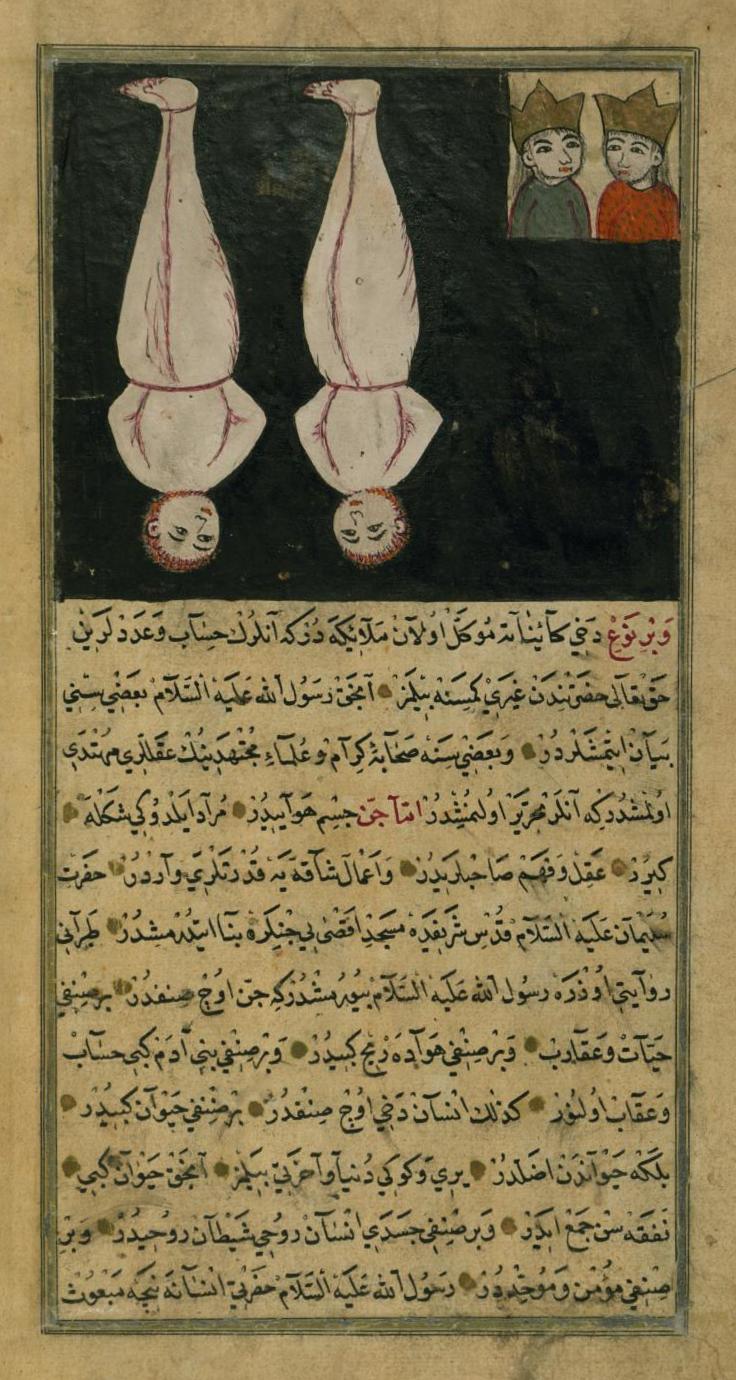 وَبِر نَوْعِ دخي كآئِنٰاتَه مُوَكَّل اُولآن مَلآئِكَه دُرْكه آنلرُك حِسٰاب وَعَدَدْلَرِينْ
حَقّ تعَالى حضرتندن غَيرِي كِمسنَه بيلمز آنجق رَسُول الله عَليهِ السَّلآم بَعضِي سِنِي
بيَآن ايتمشلردُر وَبعَضِي سنه صَحٰابهٔ كِرآم وَعُلمآءِ مُجْتهدينك عَقللرِي مهُتَدِي
اولمشدُركه آنلر اولنمشدُر امّآ جِنّ جِسِم هَوآييدُر مُرآد ايلدوكي شكله
كيرر عَقِل وَفهم صَاحبلريدُر وَاَعمٰال شٰاقَّه يَه قُدْرَتلَري وآردُر حضرت
سُليمآن عَليهِ السَّلآم قُدْس شَريفده مسجد اقصٰى يي جنلره بنآ ايتدرمشدُر طبرآنِي
روآيتي اُوزره رسول الله عَليه السَّلآم بيُورمشدُركه جنّ اوُچ صنفدُر برصِنفِي
حيّآت وَعقآرب وَبر صِنفِي هوآده رِيح كبيدُر وَبر صِنفِي بني آدم كبي حسٰاب
وَعقٰاب اُولنور كذلك انسآن دَخي اوُچ صِنفدُر بر صِنفِي حيَوآن كبيدُر
بلكه حيَوآندن اضلدُر يري وَكوكي دُنيآ وَآخرتي بيلمز آنجق حيَوآن كبي
نفقه سن جمع ايدَر وَبر صِنفِي جسَدي انسٰان رُوحي شيطآن رُوحيدُر وَبر
صِنفِي مؤمن وَمُوحّددُر رسُول الله عَليهِ السَّلآم حضرتي انسٰانَه نيجه مَبعُوث